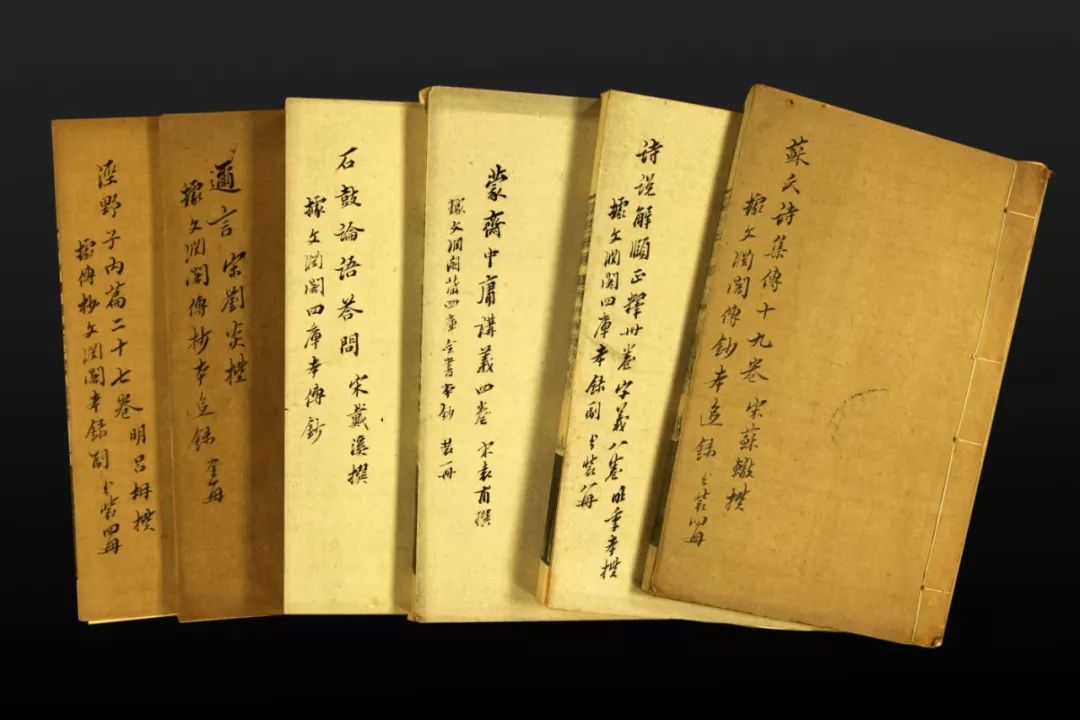 蘇氏詩集傳十九卷 宋蘇轍撰
據文淵閣傳鈔本迻錄 分裝四冊
诗説解頤正釋卅卷字義八卷 明季本撰
據文淵閣四庫本録副 分裝八冊
蒙齋中庸講義四卷 宋袁甫撰
據文淵閣藏四庫全書本鈔 裝一冊
石鼓論語答問 宋戴溪撰
據文淵閣四庫本傳鈔
邇言 宋劉炎撰
據文淵閣傳抄本迻録 壹冊
涇野子内篇二十七卷 明吕柟撰
據傳抄文淵閣本録副 分裝四冊